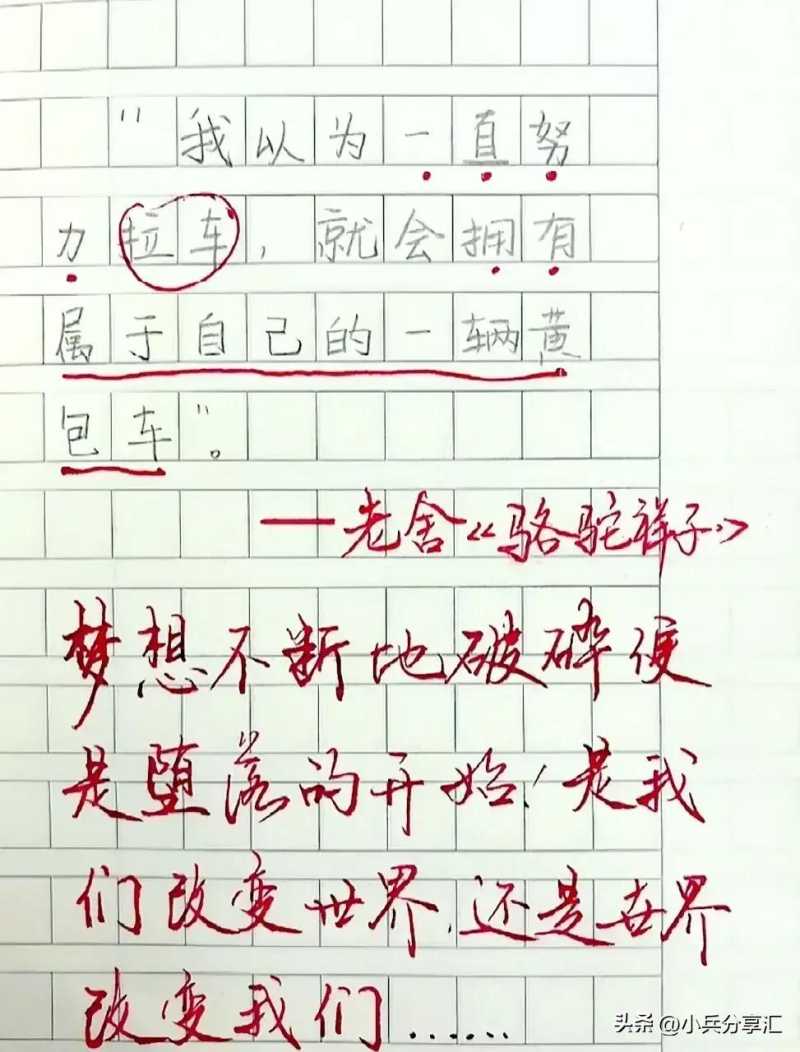 "我以为一直努
力拉车,就会拥有
属于自己的一辆黄
包车"。
——老舍《骆驼祥子》
梦想不断地破碎便
是堕落的开始!是我
们改变世界,还是世界
改变我们……
头条 @小兵分享汇